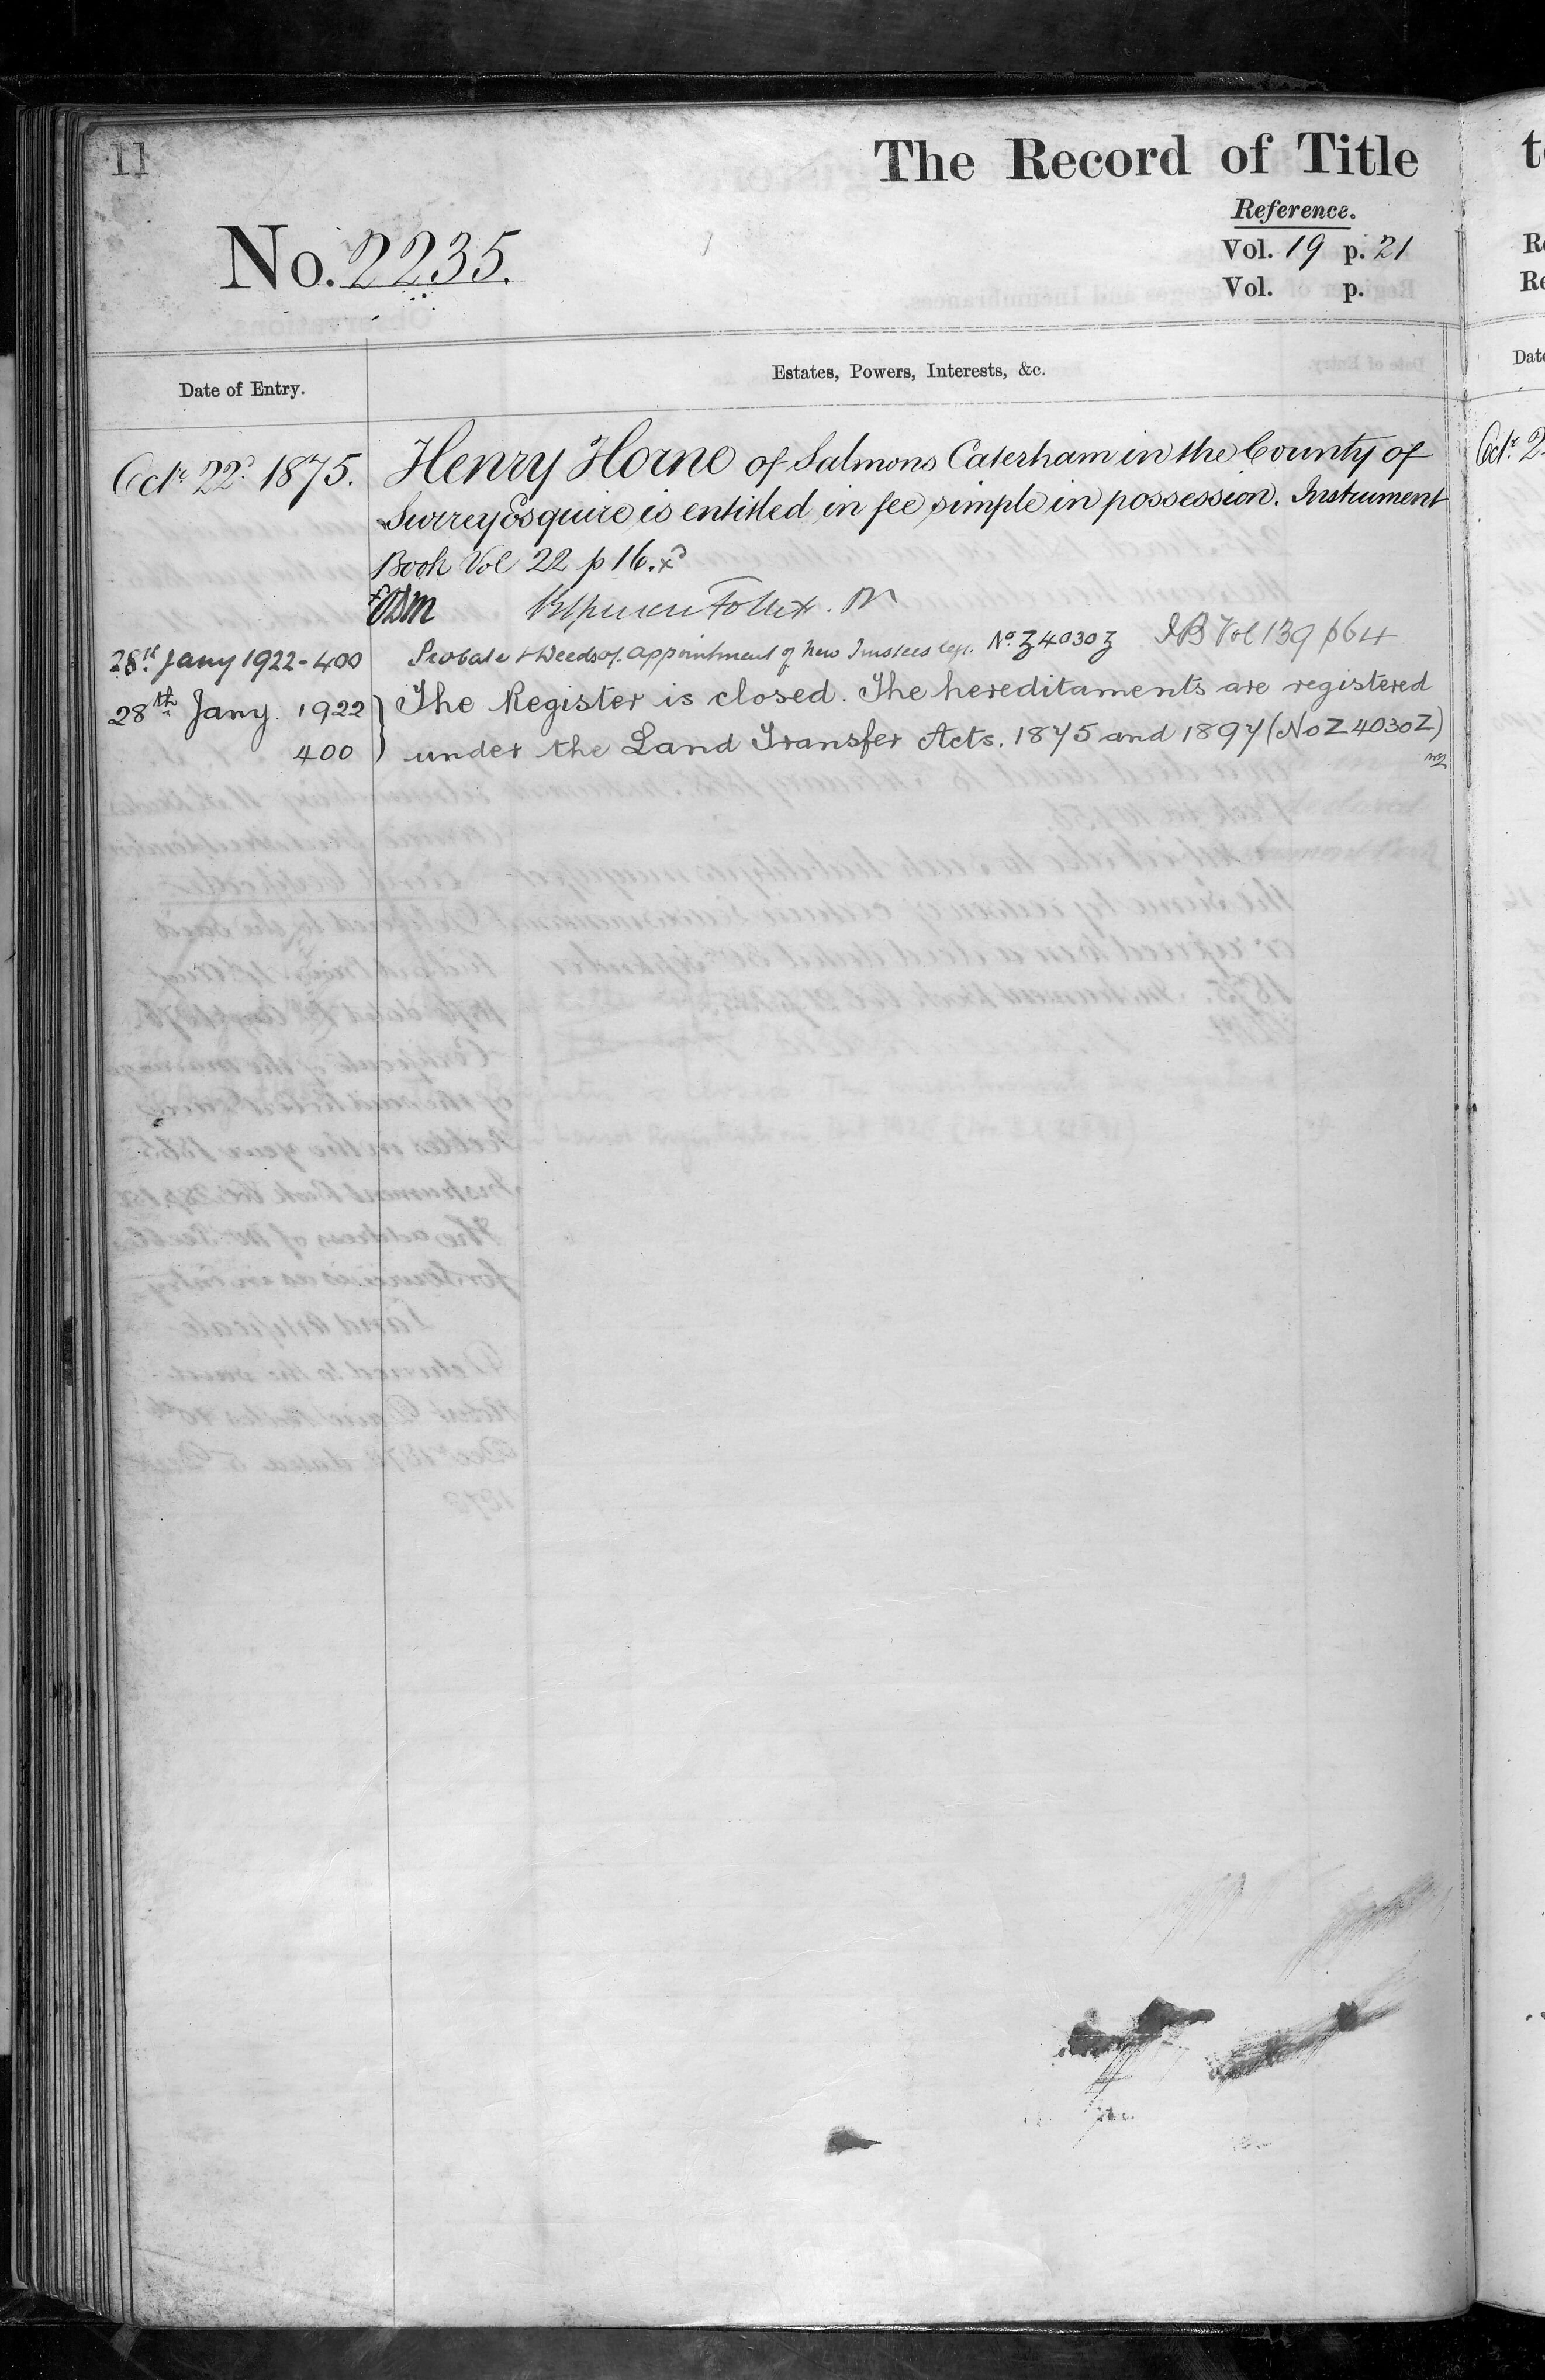 11
The Record of Title
Reference.
No. 2235.
Vol. 19 p. 21
Vol. p.
Date of Entry.
Estates, Powers, Interests, &c.
Octr. 22d. 1875.
Henry Horne of Salmons Caterham in the County of
Surrey Esquire is entitled in fee simple in possession. Instrument
Book Vol 22 p 16.
28th Jany 1922-400
Probate & Deeds of appointment of new Trustees No Z4030Z IB Vol 139 p64
28th Jany. 1922
400
The Register is closed. The hereditaments are registered
under the Land Transfer Acts. 1875 and 1897 (No Z4030Z)